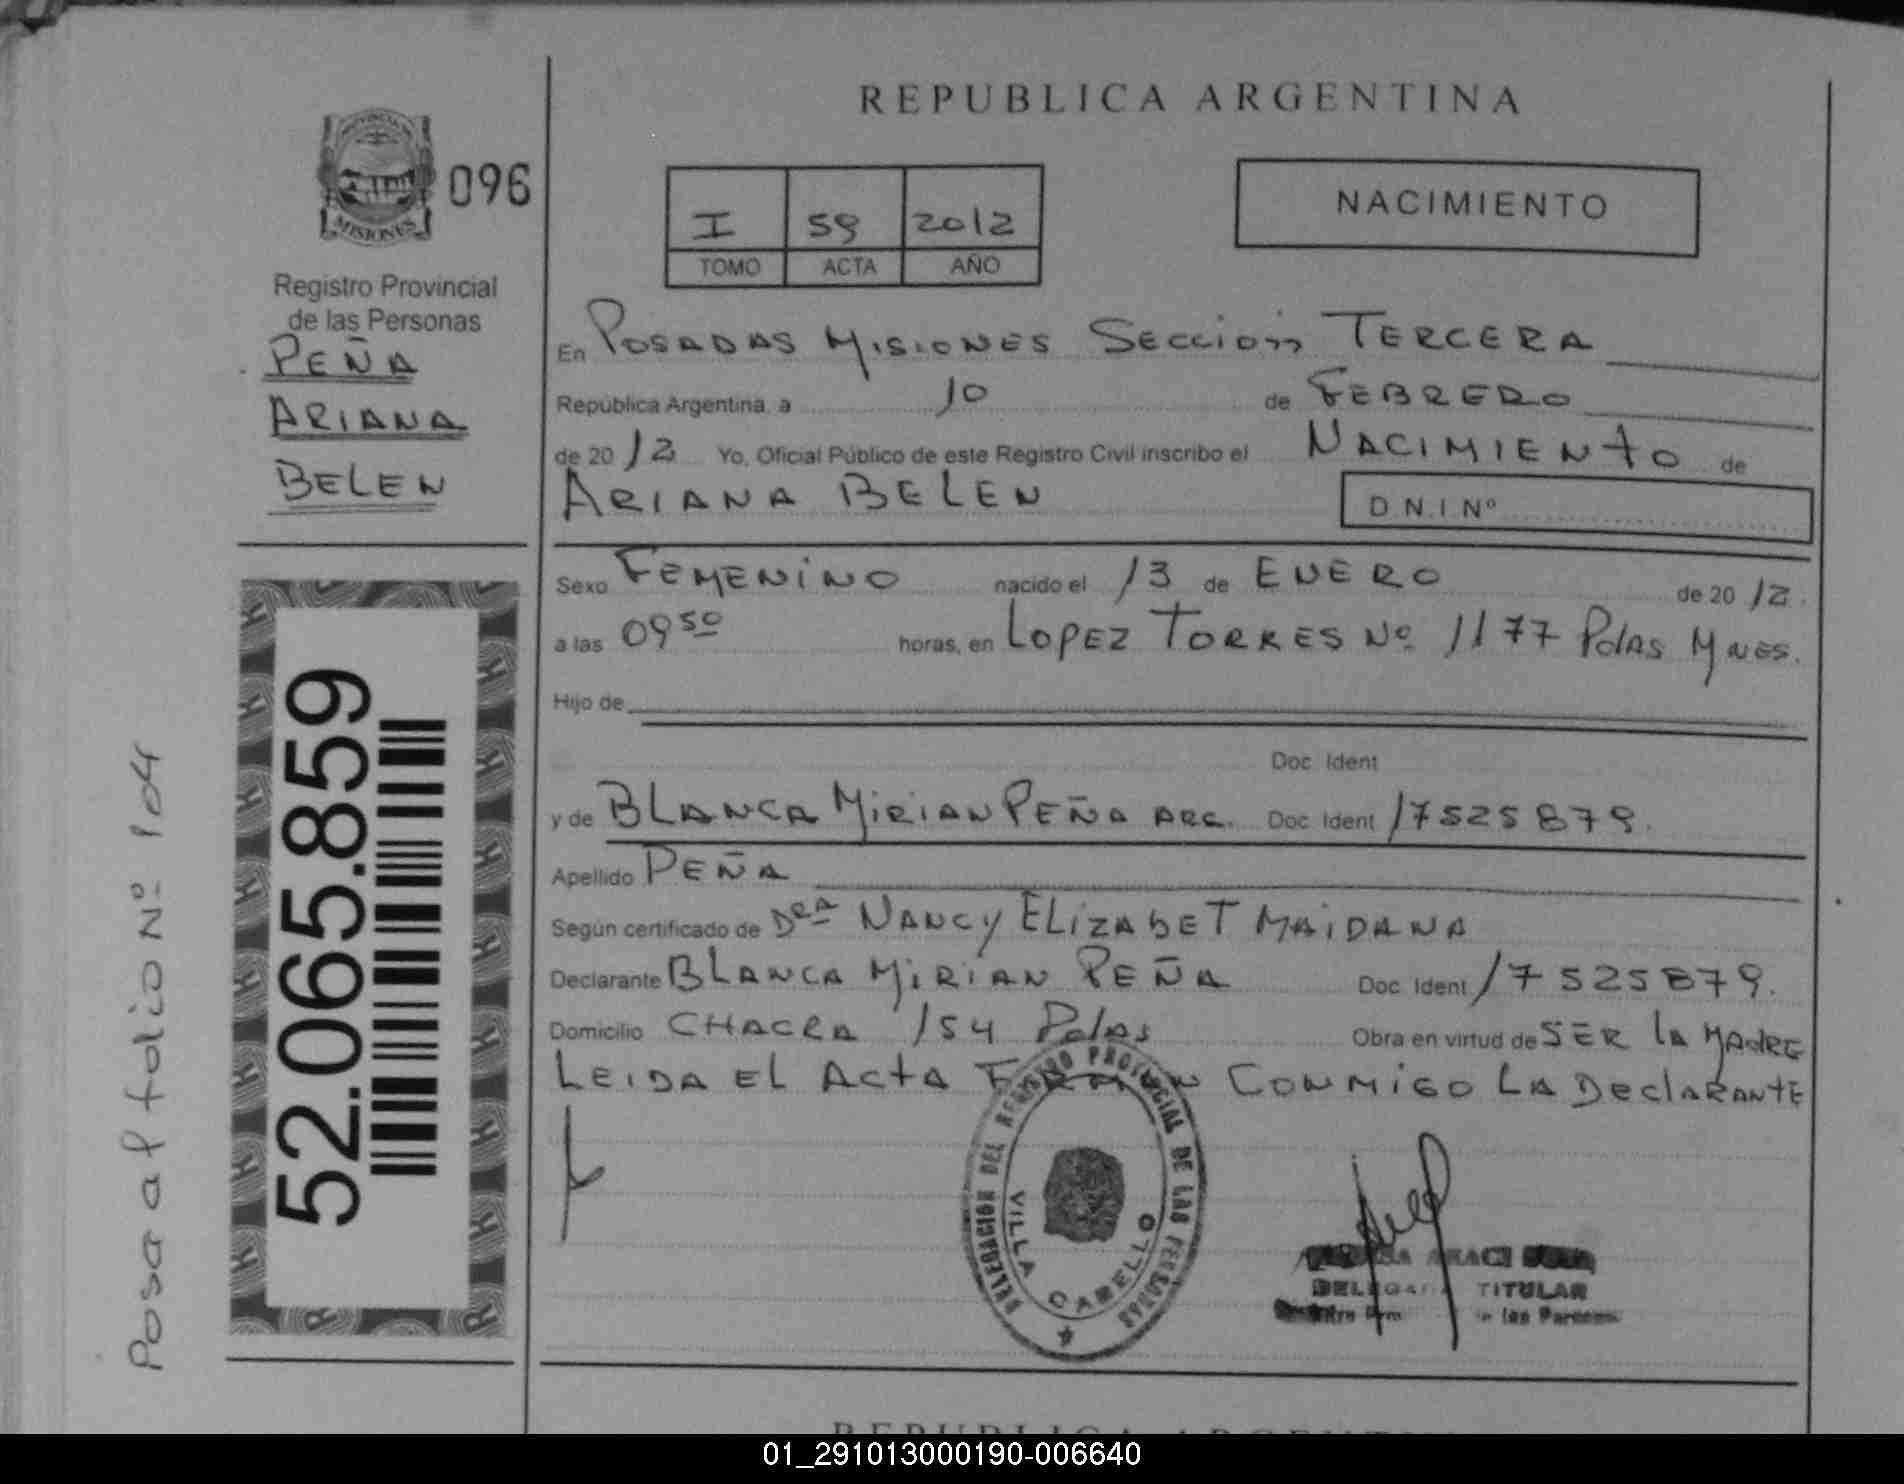 REPUBLICA ARGENTINA
PROVINCIA DE
MISIONES
096
Registro Provincial
de las Personas
PEÑA
ARIANA
BELEN
I 59 2012
TOMO ACTA AÑO
NACIMIENTO
En POSADAS MISIONES SECCIOn TERCERA
República Argentina, a 10 de FEBRERO
de 2012 Yo, Oficial Público de este Registro Civil inscribo el NACIMIENTO de
ARIANA BELEN D.N.I Nº
Sexo FEMENINO nacido el 13 de ENERO de 2012.
a las 09 50 horas, en LOPEZ TORRES Nº 1177 Pdas MNES.
Hijo de
Doc. Ident
y de BLANCA MIRIAN PEÑA ARG. Doc. Ident 17525879.
Apellido PEÑA
Según certificado de DRA NANCY ELIZABET MAIDANA
Declarante BLANCA MIRIAN PEÑA Doc. Ident 17525879.
Domicilio CHACRA 154 Pdas Obra en virtud de SER LA MADRE
LEIDA EL ACTA FIRMAN CONMIGO LA DECLARANTE
DELEGACION DEL REGISTRO PROVINCIAL DE LAS PERSONAS
VILLA CABELLO
TITULAR
52.065.859
Pasa al folio Nº 104
REPUBLICA ARGENTINA
01_291013000190-006640